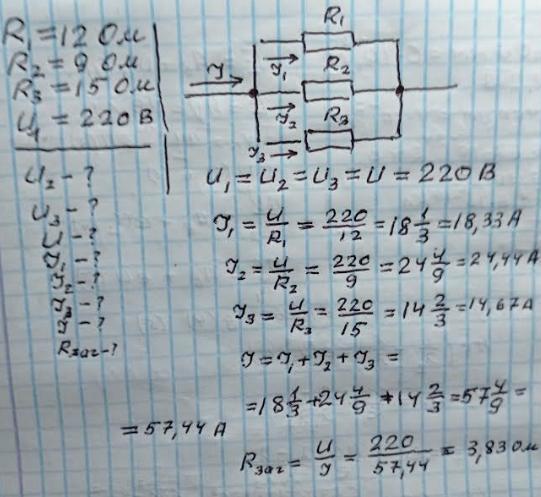 R₁ = 12 Ом
R₂ = 9 Ом
R₃ = 15 Ом
U₁ = 220 В
U₂ - ?
U₃ - ?
U - ?
I₁ - ?
I₂ - ?
I₃ - ?
I - ?
Rзаг - ?
R₁
I
I₁
R₂
I₂
R₃
I₃
U₁ = U₂ = U₃ = U = 220 В
I₁ = U/R₁ = 220/12 = 18 1/3 = 18,33 А
I₂ = U/R₂ = 220/9 = 24 4/9 = 24,44 А
I₃ = U/R₃ = 220/15 = 14 2/3 = 14,67 А
I = I₁ + I₂ + I₃ =
= 18 1/3 + 24 4/9 + 14 2/3 = 57 4/9 =
= 57,44 А
Rзаг = U/I = 220/57,44 = 3,83 Ом